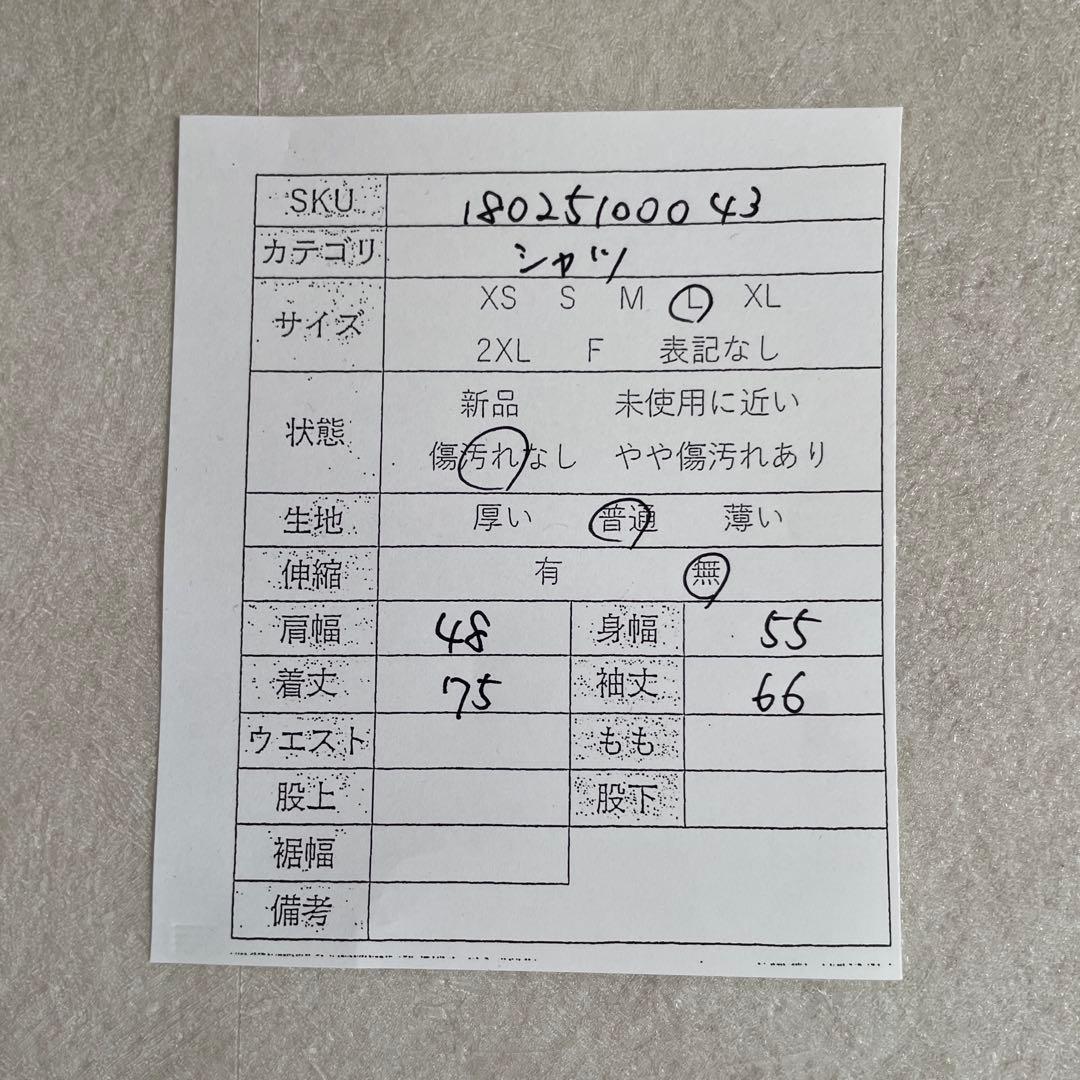 SKU 18025100043
カテゴリ シャツ
サイズ XS S M L XL
2XL F 表記なし
状態 新品 未使用に近い
傷汚れなし やや傷汚れあり
生地 厚い 普通 薄い
伸縮 有 無
肩幅 48 身幅 55
着丈 75 袖丈 66
ウエスト もも
股上 股下
裾幅
備考